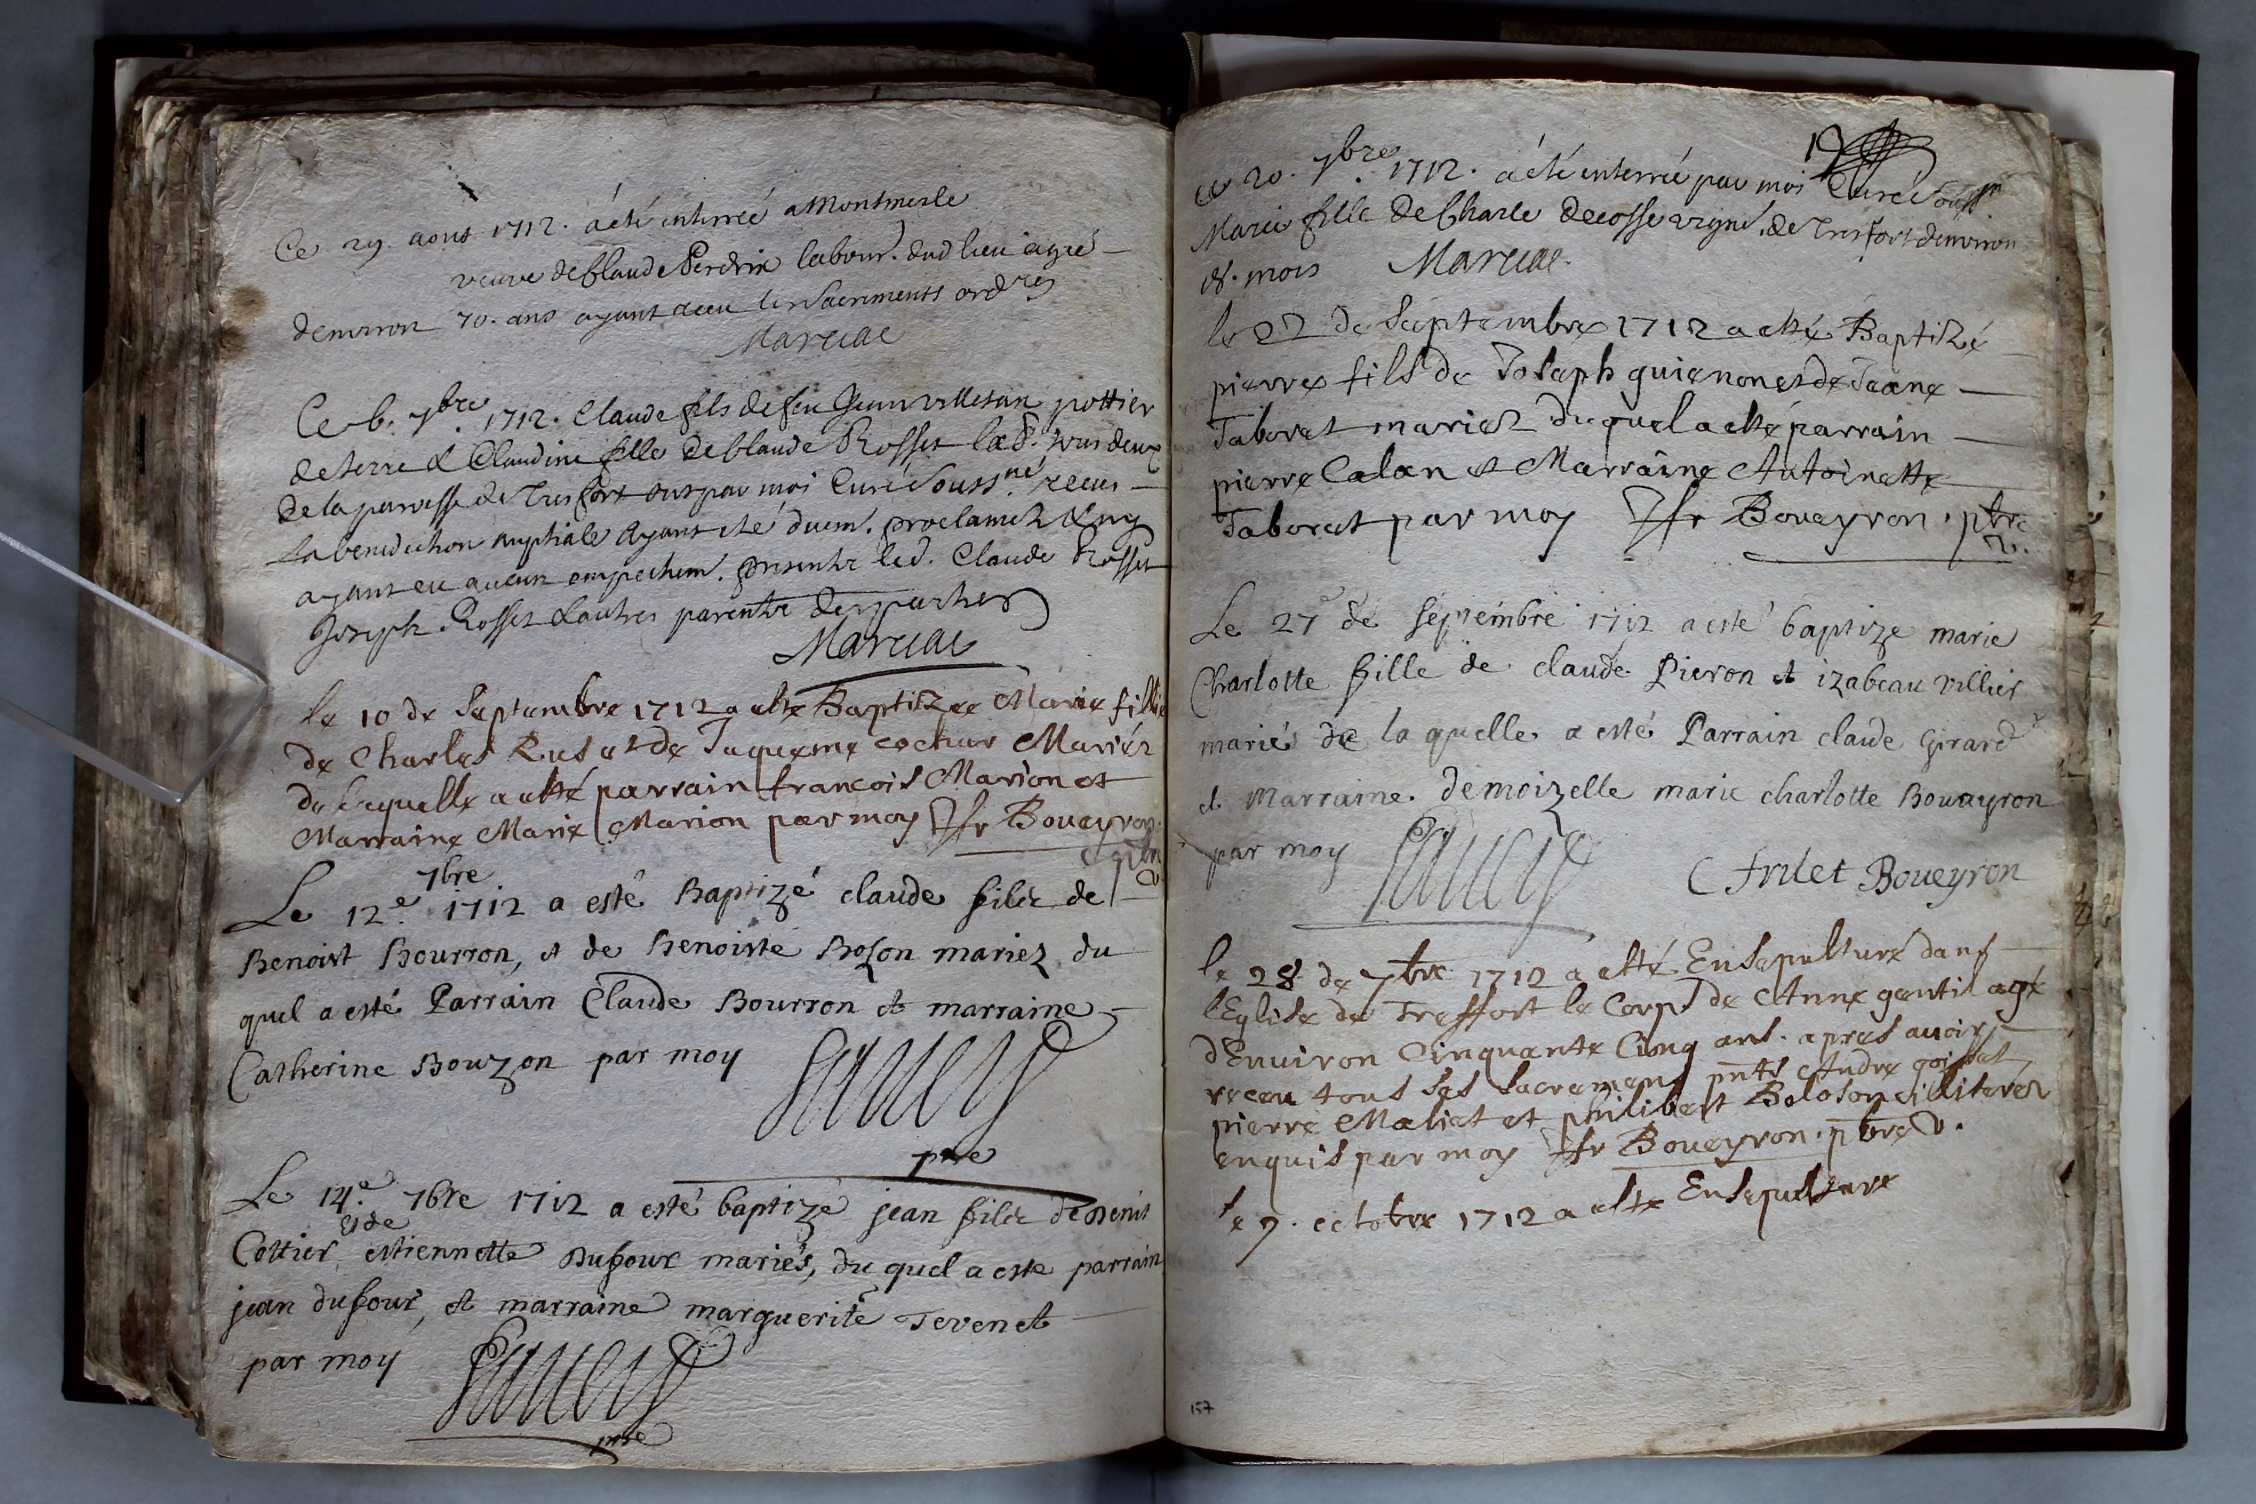 Ce 29 aout 1712. a été interrée a Montmerle
veuve de Claude Perdrix labour. dud lieu agée
denviron 70. ans ayant receu les Sacrements ordres
Marciac
Ce 6. 7bre 1712. Claude fils de feu Jean pottier
de terre & Claudine fille de Claude Rosset tous deux
de la paroisse de Tresfort ont par moi Curé Soussné receu
la benediction nuptiale ayant été duem. proclamez & ny
ayant eu aucun empechem. presents led. Claude Rosset
Joseph Rosset & autres parents des parties
Marciac
le 10 de Septembre 1712 a esté Baptizee Marie fillie
de Charles et de Jaqueme cochar Mariéz
de laquelle a esté parrain francois Marion et
Marraine Marie Marion par moy fr Boueyron
ptre
Le 12e. 7bre 1712 a esté Baptizé claude filz de
Benoist Bourron, et de benoiste Bozon mariez du
quel a esté Parrain Claude Bourron et marraine
Catherine Bouzon par moy
ptre
Le 14.e 7bre 1712 a esté baptizé jean filz de Denis
Cottier et de estiennette Dufour mariés, du quel a este parrain
jean dufour, et marraine marguerite Tevenet
par moy
ptre
ce 20. 7bre 1712. a été interrée par moi Curé Soussn
Marie fille de Charle decosse vign. de Tresfort denviron
18. mois Marciac
le 22 de Septembre 1712 a esté Baptizé
pierre fils de Joseph guienon et de Jeane
Taboret mariez duquel a esté parrain
pierre Calan et Marraine Antoinette
Taboret par moy fr Boueyron. ptre
Le 27e de septembre 1712 a esté baptize marie
Charlotte fille de claude Pieron et izabeau villier
mariés de la quelle a esté Parrain claude Girard
et Marraine. demoizelle marie charlotte Bouayron
par moy C frilet Boueyron
le 28 de 7bre 1712 a esté Ensepulturé dans
lEglise de Treffort le Corps de Anne gentil agé
dEnviron Cinquante Cinq ans. apres avoir
receu tous ses sacremens pnts Andre goissat
pierre Maliet et philibert Boloson illiterez
enquis par moy fr Boueyron. ptre v.
le 7. octobre 1712 a esté Ensepulture
157